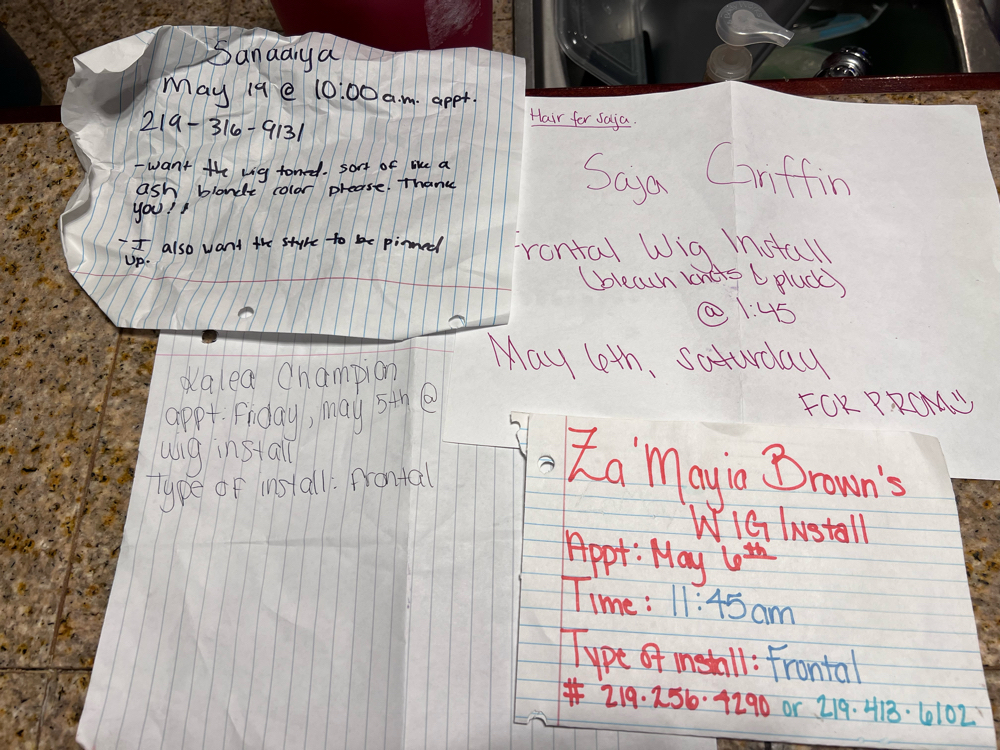 Sanaaiya
May 19 @ 10:00 a.m. appt.
219-316-9131
-want the wig toned. sort of like a
ash blonde color please. Thank
you!!
-I also want the style to be pinned
up.
Hair for Saja.
Saja Griffin
Frontal Wig Install
(bleach knots & pluck)
@ 1:45
May 6th, Saturday
FOR PROM
Kalea Champion
appt: Friday, may 5th @
wig install
Type of install: frontal
Za'Mayia Brown's
WIG Install
Appt: May 6th
Time: 11:45am
Type of install: Frontal
# 219·256·4290 or 219·413·6102